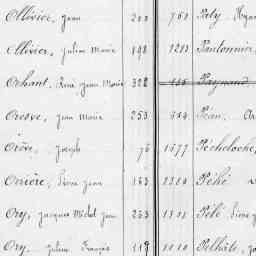 Ollivier, Jean 203 761 Paty,
Ollivier, Julien Marie 198 1213 Pautonnier,
Orhant, Rene Jean Marie 322 Paynand
Oresve, Jean Marie 253 Péan,
Orève, Joseph 76 1577 Pécheloche,
Orrière, Pierre Jean 163 Péhé
Ory, Jacques Michel Jean 233 Pelé, Pierre
Ory, Julien François 119 1010 Pelhâte,